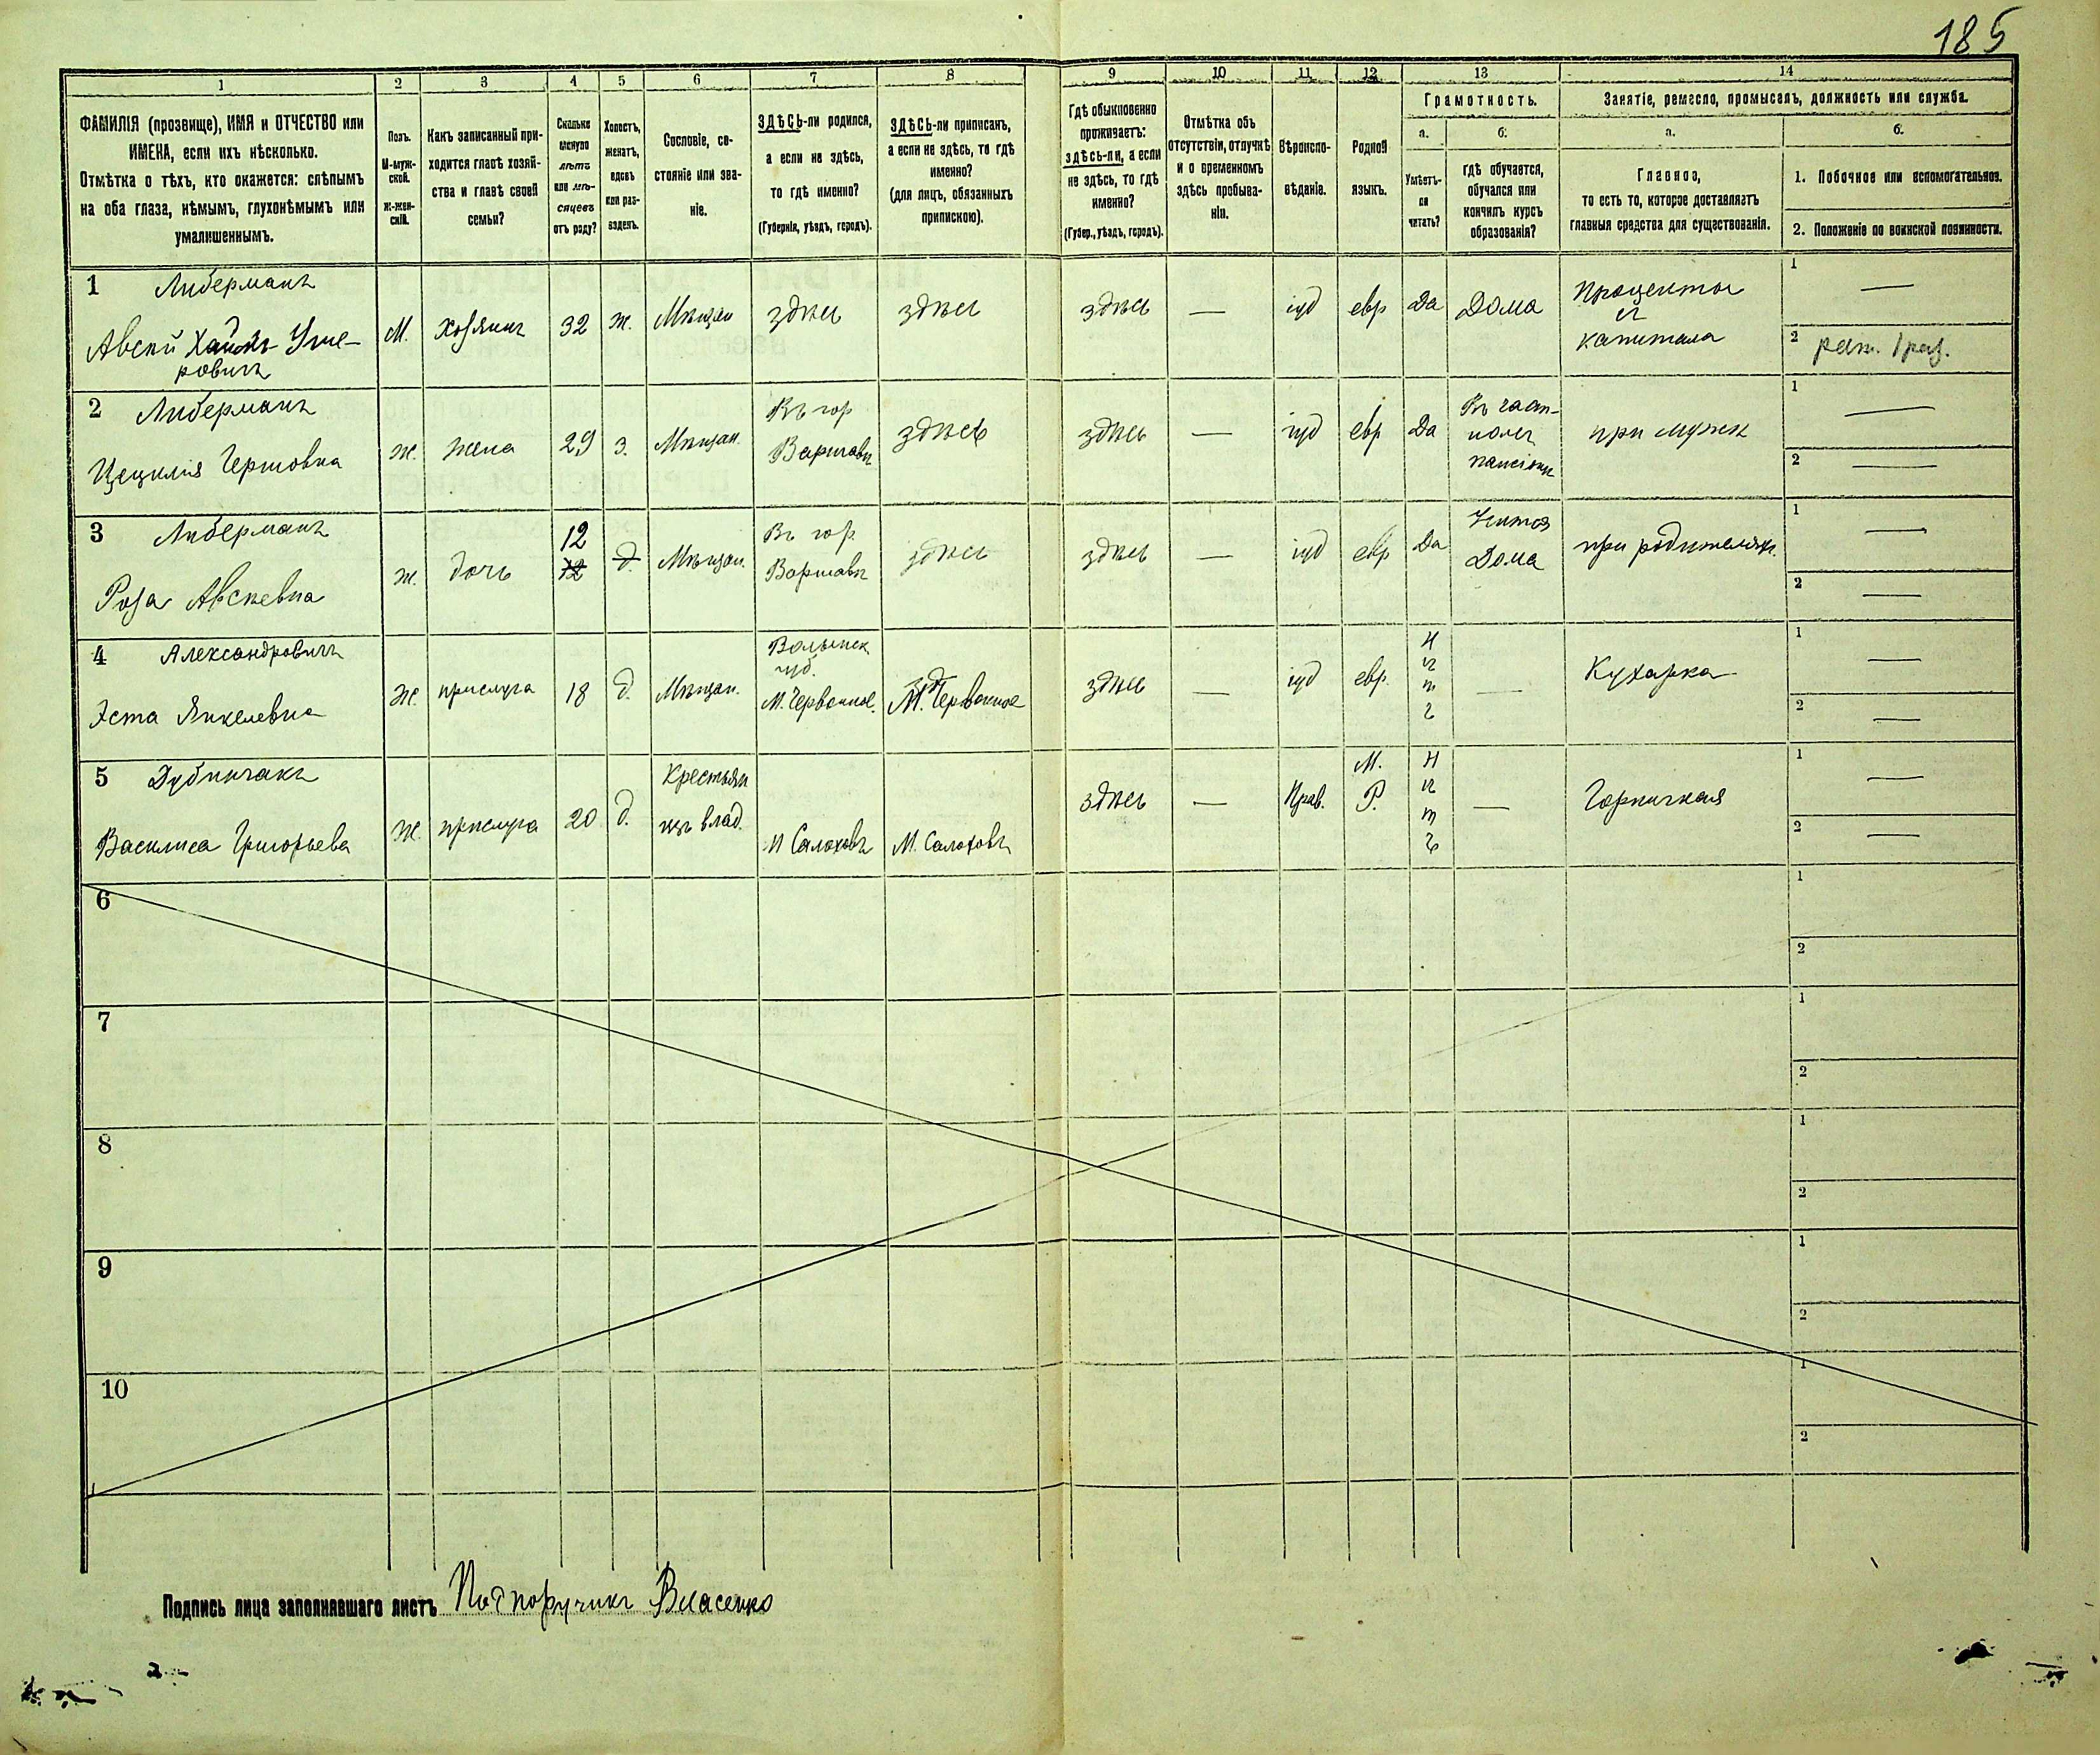 185
1 2 3 4 5 6 7 8 9 10 11 12 13 14
ФАМИЛІЯ (прозвище), ИМЯ и ОТЧЕСТВО или
ИМЕНА, если ихъ нѣсколько.
Отмѣтка о тѣхъ, кто окажется: слѣпымъ
на оба глаза, нѣмымъ, глухонѣмымъ или
умалишеннымъ.
Полъ.
М-муж-
ской.
ж-жен-
скій.
Какъ записанный при-
ходится главѣ хозяй-
ства и главѣ своей
семьи?
Сколько
минуло
лѣтъ
или мѣ-
сяцевъ
отъ роду?
Холостъ,
женатъ,
вдовъ
или раз-
веденъ.
Сословіе, со-
стояніе или зва-
ніе.
ЗДѢСЬ-ли родился,
а если не здѣсь,
то гдѣ именно?
(Губернія, уѣздъ, городъ).
ЗДѢСЬ-ли приписанъ,
а если не здѣсь, то гдѣ
именно?
(для лицъ, обязанныхъ
припискою).
Гдѣ обыкновенно
проживаетъ:
здѣсь-ли, а если
не здѣсь, то гдѣ
именно?
(Губер., уѣздъ, городъ).
Отмѣтка объ
отсутствіи, отлучкѣ
и о временномъ
здѣсь пребыва-
ніи.
Вѣроиспо-
вѣданіе.
Родной
языкъ.
Грамотность.
а. б.
Умѣетъ-
ли
читать?
гдѣ обучается,
обучался или
кончилъ курсъ
образованія?
Занятіе, ремесло, промыселъ, должность или служба.
а. б.
Главное,
то есть то, которое доставляетъ
главныя средства для существованія.
1. Побочное или вспомогательное.
2. Положеніе по воинской повинности.
1 Либерманъ
Авсѣй Хаимъ Уше-
ровичъ
М. хозяинъ 32 ж. Мѣщан здѣсь здѣсь здѣсь — іуд евр Да Дома
Проценты
съ
капитала
1 —
2 рат. 1 раз.
2 Либерманъ
Цецилія Гершовна
ж. жена 29 з. Мѣщан.
Въ гор
Варшавѣ
здѣсь здѣсь — іуд евр Да
Въ част-
номъ
пансіонѣ
при мужѣ
1 —
2 —
3 Либерманъ
Роза Авсѣевна
ж. дочь
12
12
д. Мѣщан.
Въ гор
Варшавѣ
здѣсь здѣсь — іуд евр Да
Учится
Дома
при родителяхъ.
1 —
2 —
4 Александровичъ
Эста Янкелевна
Ж. прислуга 18 д. Мѣщан.
Волынск
губ.
М. Червонное.
М. Червонное
здѣсь — іуд евр. — Кухарка
1 —
2 —
5 Дубинчакъ
Василиса Григорьева
Ж. прислуга 20 д.
Крестьян
изъ влад.
М Салоховъ М. Салоховъ
здѣсь — Прав.
М.
Р.
— Горничная
1 —
2 —
6
1
2
7
1
2
8
1
2
9
1
2
10
1
2
Подпись лица заполнявшаго листъ Подпоручикъ Власенко